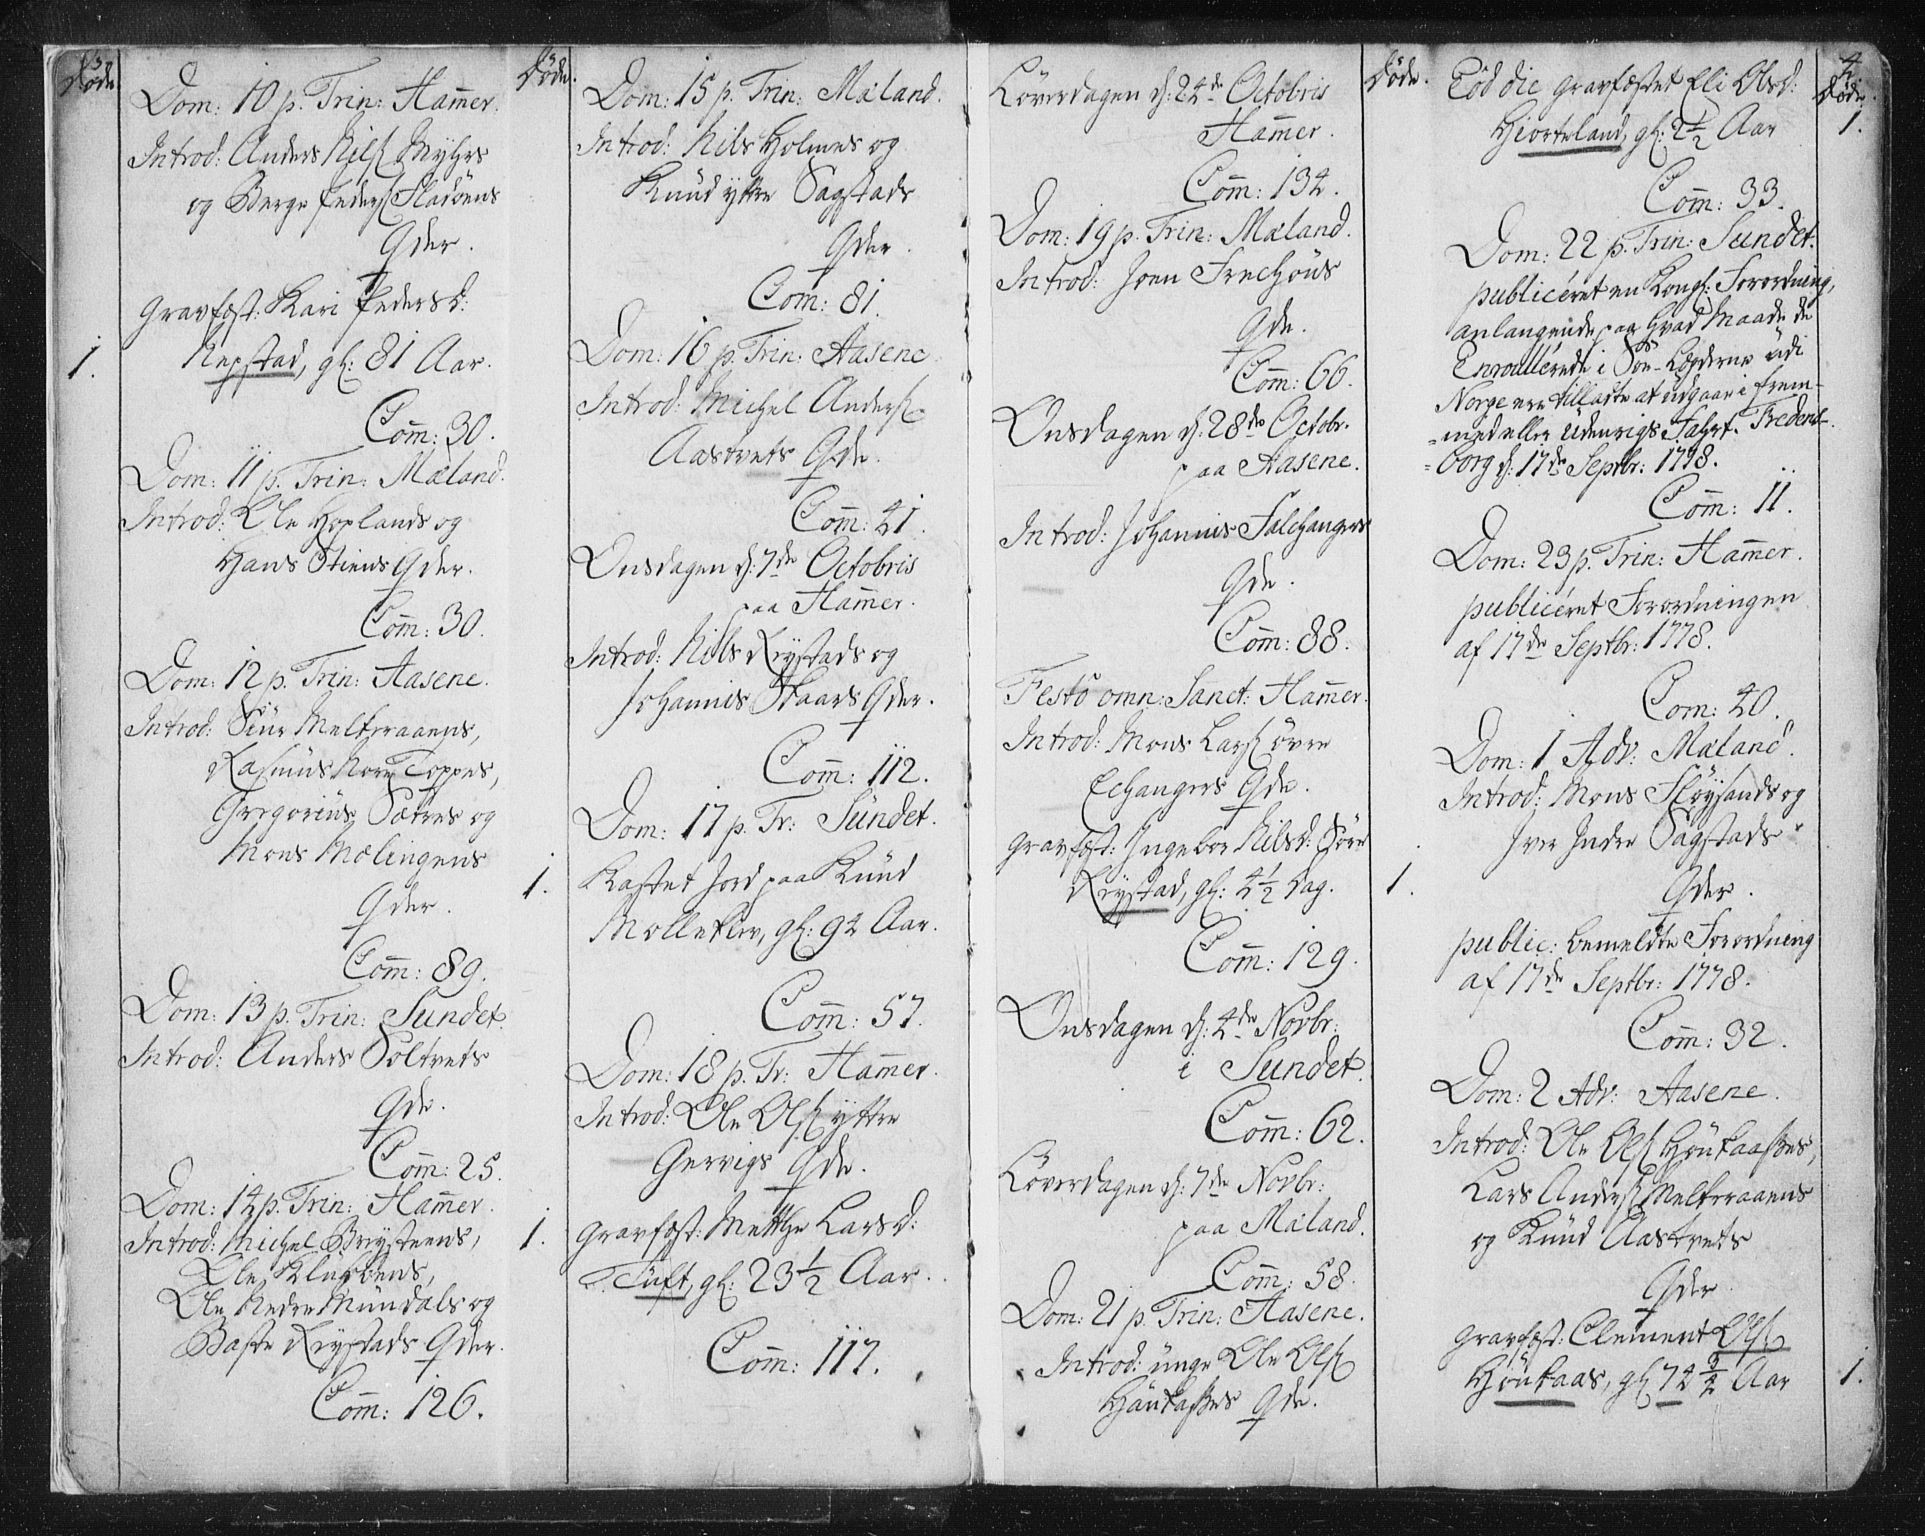 3
Døde
Dom: 10 p. Trin: Ham̄er.
Introd: Anders Nilsß Myhrs
og Berge Pedersß Fladöens
Qder.
gravfæst: Kari Pedersd:
Repstad, gl: 81 Aar.
1.
Com̄: 30.
Dom: 11 p. Trin: Mæland.
Introd: Ole Hoplands og
Hans Stiens Qder.
Com̄: 30.
Dom: 12 p. Trin: Aasene.
Introd: Siur Meltveraaens,
Rasmus Toppes,
Gregorius Sætres og
Mons Mølingens
Qder.
Com̄: 89.
Dom: 13 p. Trin: Sundet.
Introd: Anders Soltvets
Qde.
Com̄: 25.
Dom: 14 p. Trin: Ham̄er.
Introd: Michel Brysteens,
Ole
Ole Nedre Mundals og
Baste Rystads Qder.
Com̄: 126.
Døde.
Dom: 15 p. Trin: Mæland.
Introd: Nils Holmes og
Knud yttre Sagstads
Qder.
Com: 81.
Dom: 16 p. Trin: Aasene
Introd: Michel Andersß
Aastvets Qde.
Com̄: 41.
Onsdagen d: 7de Octobris
paa Ham̄er.
Introd: Nils Rystads og
Johannis Skaars Qder.
Com̄: 112.
Dom: 17 p. Tr: Sundet.
Kastet Jord paa Knud
1.
Molleklev, gl: 94 Aar.
Com̄: 57.
Dom: 18 p. Tr: Ham̄er.
Introd: Ole Olsß yttre
Gervigs Qde.
gravfæst: Metthe Larsd:
1.
Tuft, gl: 23 1/2 Aar.
Com̄: 117.
Løverdagen d: 24de Octobris
Ham̄er.
Com̄: 134.
Dom: 19 p. Trin: Mæland.
Introd: Joen Frechöus
Qde.
Com̄: 66.
Onsdagen d: 28de Octobr.
paa Aasene.
Introd: Johannis Falchangers
Qde.
Com̄: 88.
Festo omn: Sanct: Ham̄er.
Introd: Mons Larsß övre
Echangers Qde.
gravfæst: Ingebor Nilsd: Söre
Rystad, gl: 4 1/2 Dag.
1.
Com̄: 129.
Onsdagen d: 4de Novbr:
i Sundet.
Com̄: 62.
Løverdagen d: 7de Novbr:
paa Mæland.
Com̄: 58.
Dom: 21 p. Trin: Aasene.
Introd: unge Ole Olsß
Höukaßes Qde.
Døde.
4
Døde.
Eod die gravfæstet Eli Olsd:
Hiorteland, gl: 2 1/2 Aar
1.
Com̄: 33.
Dom: 22 p. Trin: Sundet.
publiceret en Kongl: Forordning,
anlangende paa hvad Maade de
Enroullerede i Söe-Lægderne udi
Norge ere tilladte at udgaae i frem-
-med eller Udenrigs Fahrt. Fredens-
-borg d: 17de Septbr: 1778.
Com̄: 11.
Dom: 23 p. Trin: Ham̄er.
publiceret Forordningen
af 17de Septbr: 1778.
Com: 40.
Dom: 1 Adv: Mæland.
Introd: Mons Flöysands og
Iver Indre Sagstads
Qder.
public: bemeldte Forordning
af 17de Septbr: 1778.
Com̄: 32.
Dom: 2 Adv: Aasene.
Introd: Ole Olsß Höukaaßes,
Lars Andersß Meltveraaens
og Knud Aastvets
Qder
gravfæst: Clement Olsß
Höukaas, gl: 74 3/4 Aar
1.